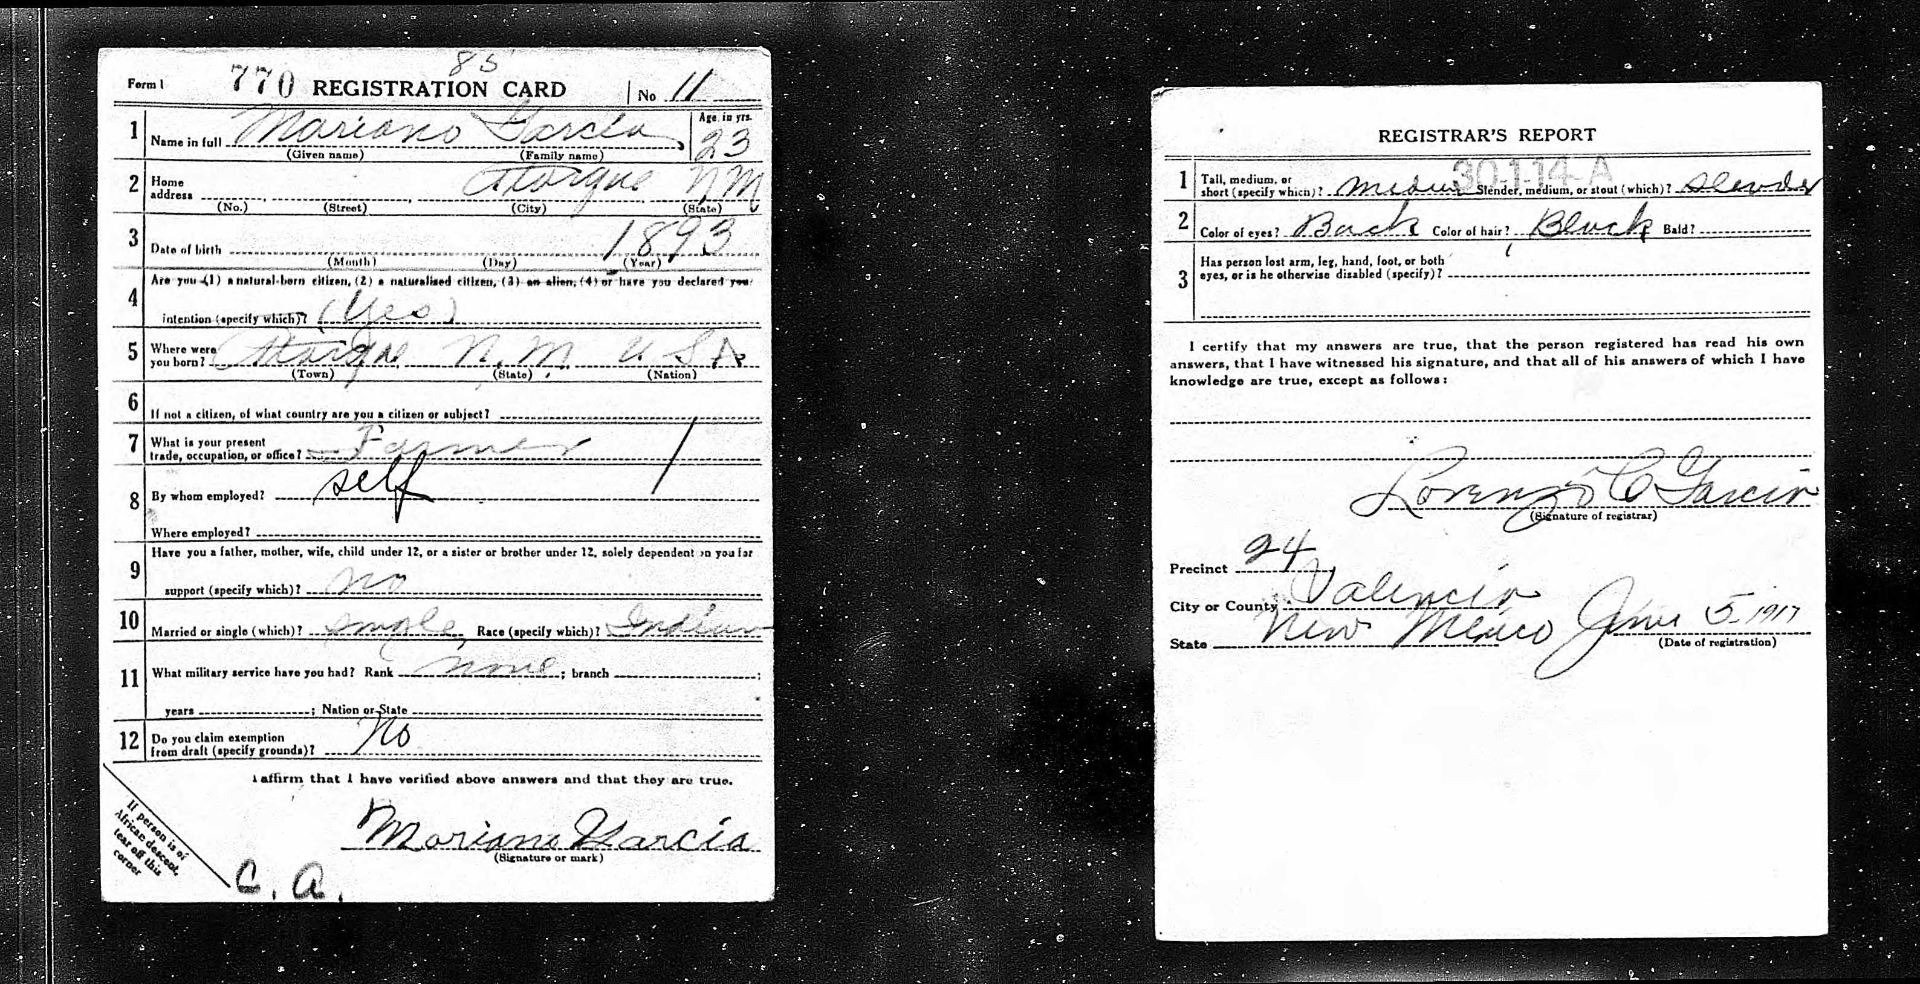 85
Form 1 770 REGISTRATION CARD No 11
1 Name in full Mariano Garcia, Age in yrs. 23
(Given name) (Family name)
2 Home address Atarque N M
(No.) (Street) (City) (State)
3 Date of birth 1893
(Month) (Day) (Year)
4 Are you (1) a natural-born citizen, (2) a naturalized citizen, (3) an alien, (4) or have you declared your
intention (specify which)? (Yes)
5 Where were you born? Atarque N. M. U S A
(Town) (State) (Nation)
6 If not a citizen, of what country are you a citizen or subject?
7 What is your present trade, occupation, or office? Farmer
8 By whom employed? self
Where employed?
9 Have you a father, mother, wife, child under 12, or a sister or brother under 12, solely dependent on you for
support (specify which)? no
10 Married or single (which)? single Race (specify which)? Indian
11 What military service have you had? Rank none ; branch ;
years ; Nation or State
12 Do you claim exemption from draft (specify grounds)? No
I affirm that I have verified above answers and that they are true.
Mariano Garcia
(Signature or mark)
If person is of
African descent,
tear off this
corner
C. A.
REGISTRAR'S REPORT
30-1-14-A
1 Tall, medium, or short (specify which)? Slender, medium, or stout (which)? slender
2 Color of eyes? Back Color of hair? Black Bald?
3 Has person lost arm, leg, hand, foot, or both
eyes, or is he otherwise disabled (specify)?
I certify that my answers are true, that the person registered has read his own
answers, that I have witnessed his signature, and that all of his answers of which I have
knowledge are true, except as follows:
Lorenzo C Garcia
(Signature of registrar)
Precinct 24
City or County Valencia
State New Mexico June 5-1917
(Date of registration)